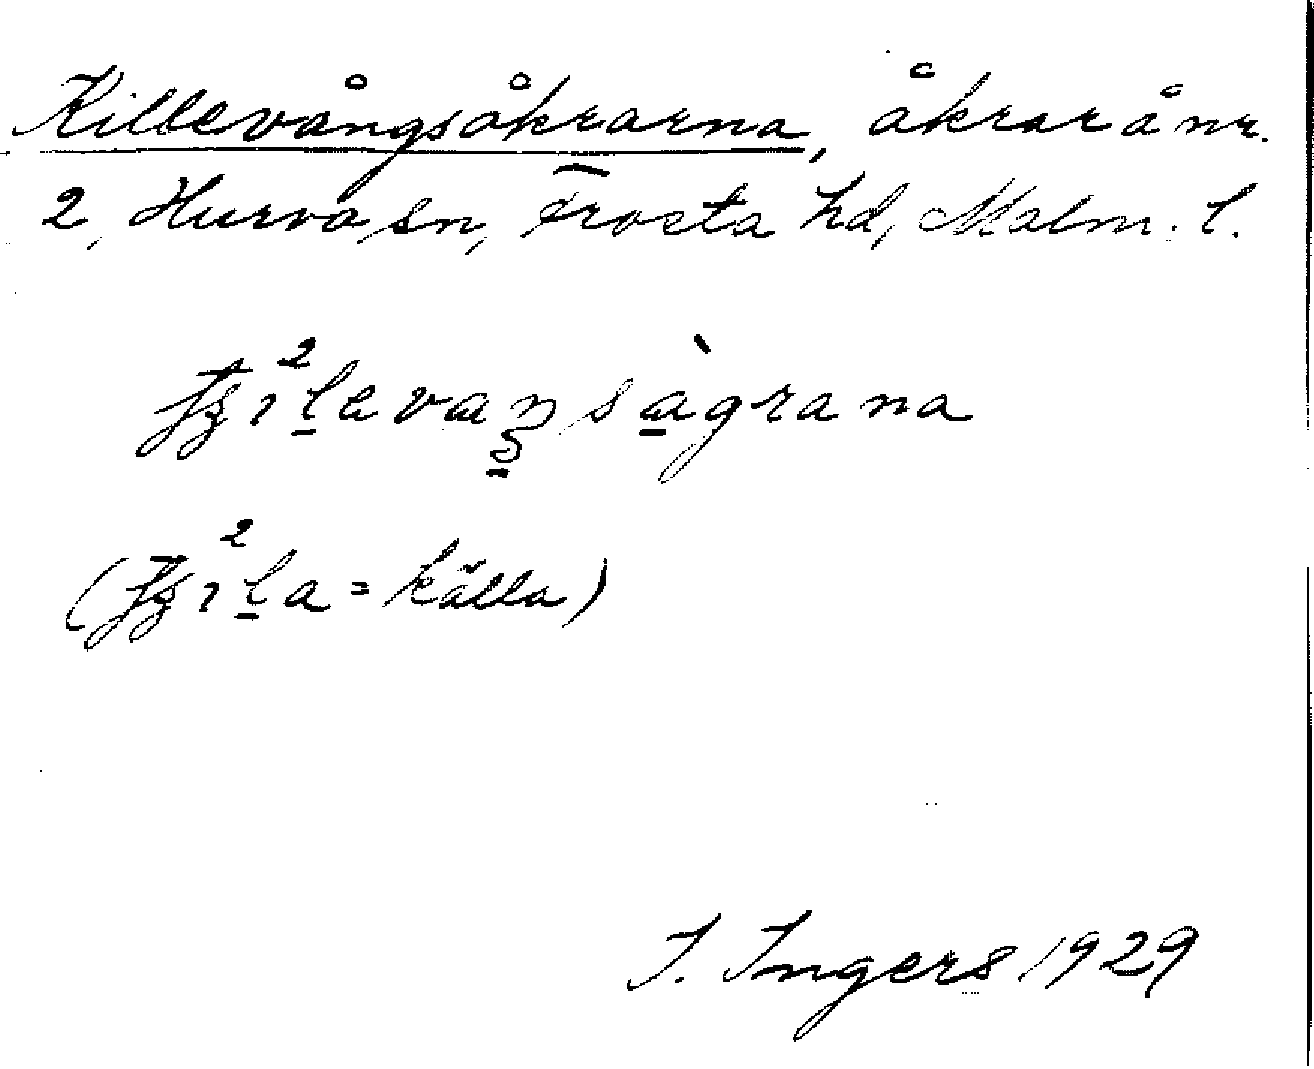 Killevångsåkrarna, åkrar å nr.
2, Hurva sn, Frosta hd, Malm. l.
(= källa)
I. Ingers 1929